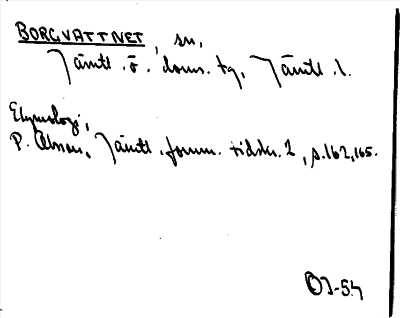 BORGVATTNET, sn,
Jämtl. ö. doms. tg, Jämtl. l.
Etymologi,
P. Olsson, Jämtl. fornm. tidskr. 2, s.162,165.
OJ-54